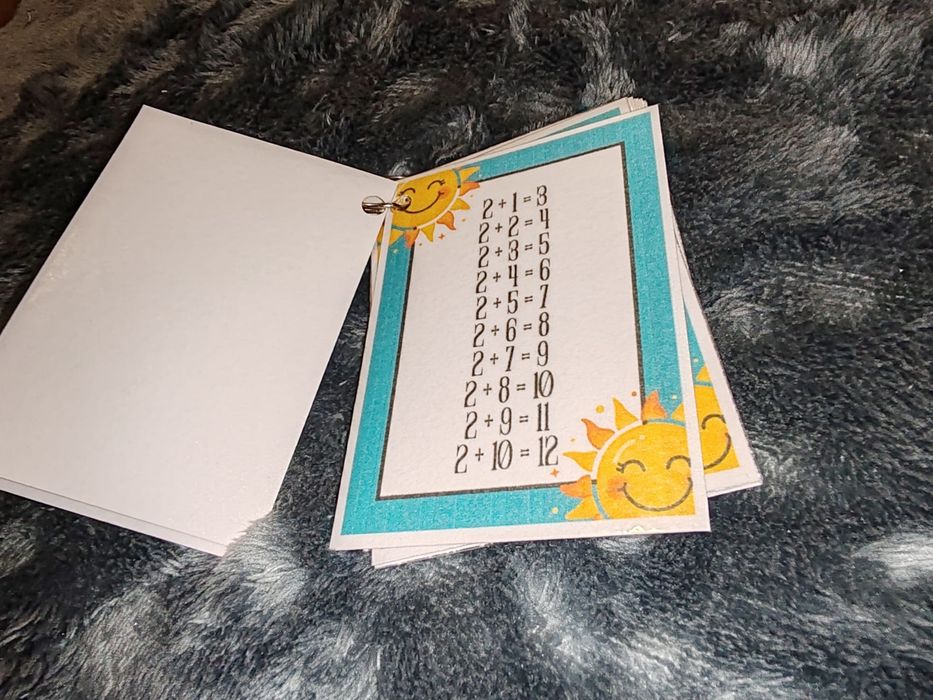 2 + 1 = 3
2 + 2 = 4
2 + 3 = 5
2 + 4 = 6
2 + 5 = 7
2 + 6 = 8
2 + 7 = 9
2 + 8 = 10
2 + 9 = 11
2 + 10 = 12